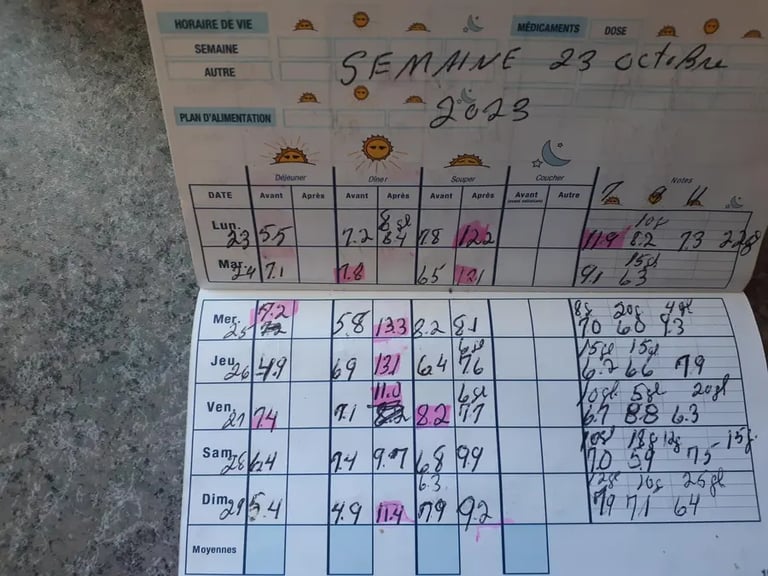 HORAIRE DE VIE MÉDICAMENTS DOSE
SEMAINE
AUTRE
SEMAINE 23 octobre
2023
PLAN D'ALIMENTATION
Déjeuner Dîner Souper Coucher Notes
DATE Avant Après Avant Après Avant Après Avant Autre 7 9 11
Lun. 8 gl 10g
23 5.5 7.2 8.4 7.8 12.2 11.9 8.2 7.3
Mar. 15gl
24 7.1 7.8 6.5 12.1 9.1 6.3
Mer. 7.2 8g 20g 4gl
25 5.8 13.3 8.2 8.1 7.0 6.0 9.3
Jeu 6gl 15gl 15gl
26 4.9 6.9 13.1 6.4 7.6 6.2 6.6 7.9
Ven. 11.0 6gl 10gl 5gl 20gl
27 7.4 7.1 8.2 7.7 6.7 8.8 6.3
Sam. 10gl 18g 12g 15g
28 6.4 7.4 9.7 6.8 9.9 7.0 5.9 7.5
Dim. 6.3 12gl 10g 25gl
29 5.4 4.9 11.4 7.9 9.2 7.9 7.1 6.4
Moyennes